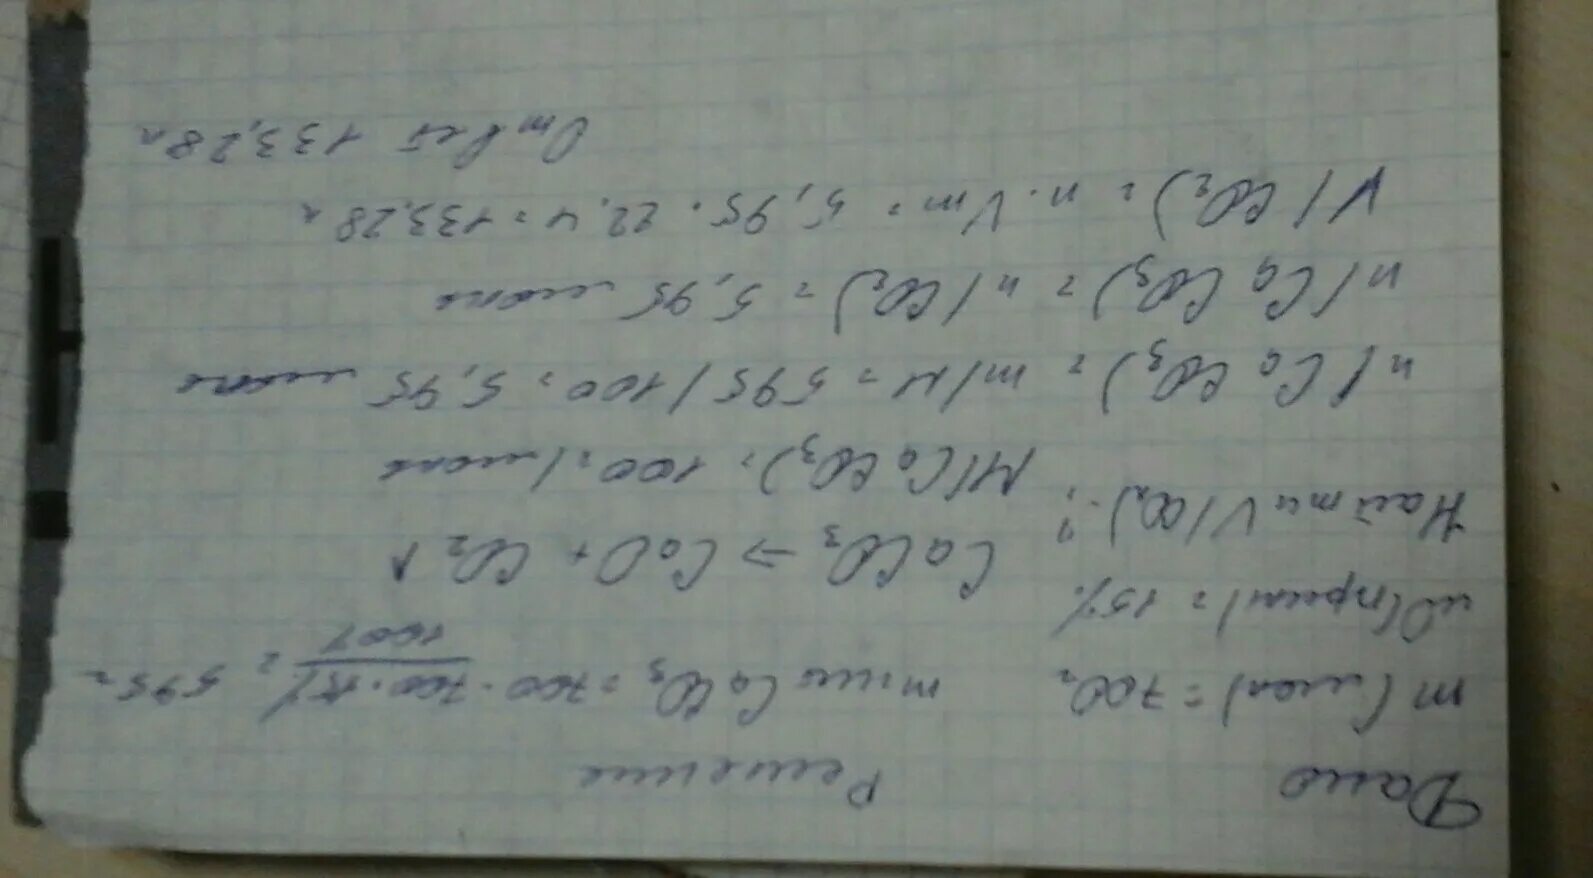 Дано
Решение
m(мол) = 700г
m чис CaCO₃ = 700 - 700·15%/100% = 595г
ω(прим) = 15%
CaCO₃ → CaO + CO₂↑
Найти V(CO₂)-?
M(CaCO₃) = 100г/моль
n(CaCO₃) = m/M = 595/100 = 5,95 моль
n(CaCO₃) = n(CO₂) = 5,95 моль
V(CO₂) = n·Vm = 5,95·22,4 = 133,28л
Ответ 133,28л